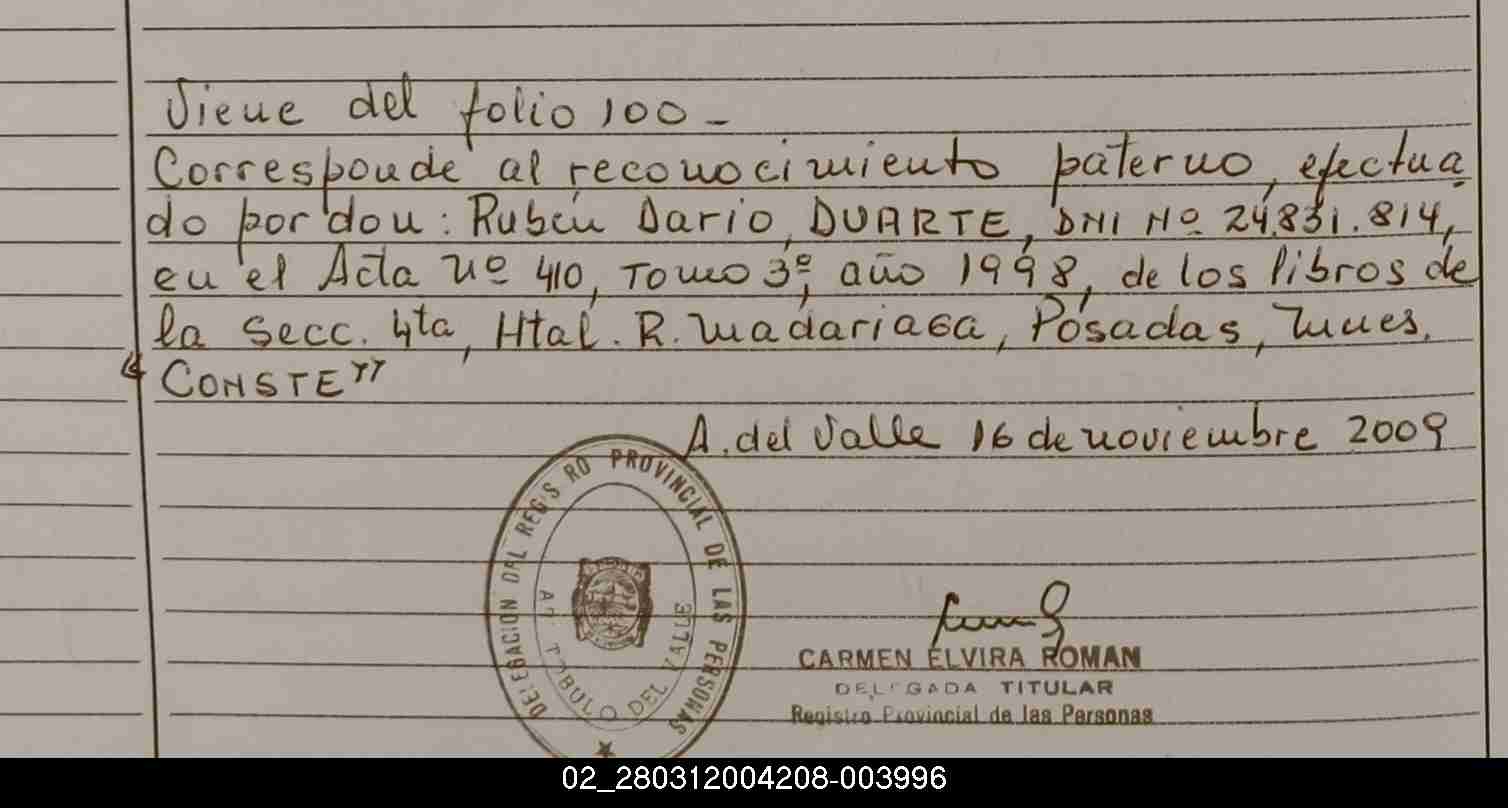 Viene del folio 100 -
Corresponde al reconocimiento paterno, efectua
do por don: Rubén Dario, DUARTE, DNI Nº 24.831.814,
en el Acta Nº 410, Tomo 3º, año 1998, de los libros de
la Secc. 4ta, Htal. R. Madariaga, Posadas, Mnes.
"CONSTE"
A. del Valle 16 de noviembre 2009
DELEGACION DEL REGISRO PROVINCIAL DE LAS PERSONAS
DEL VALLE
CARMEN ELVIRA ROMAN
DELEGADA TITULAR
Registro Provincial de las Personas
02_280312004208-003996